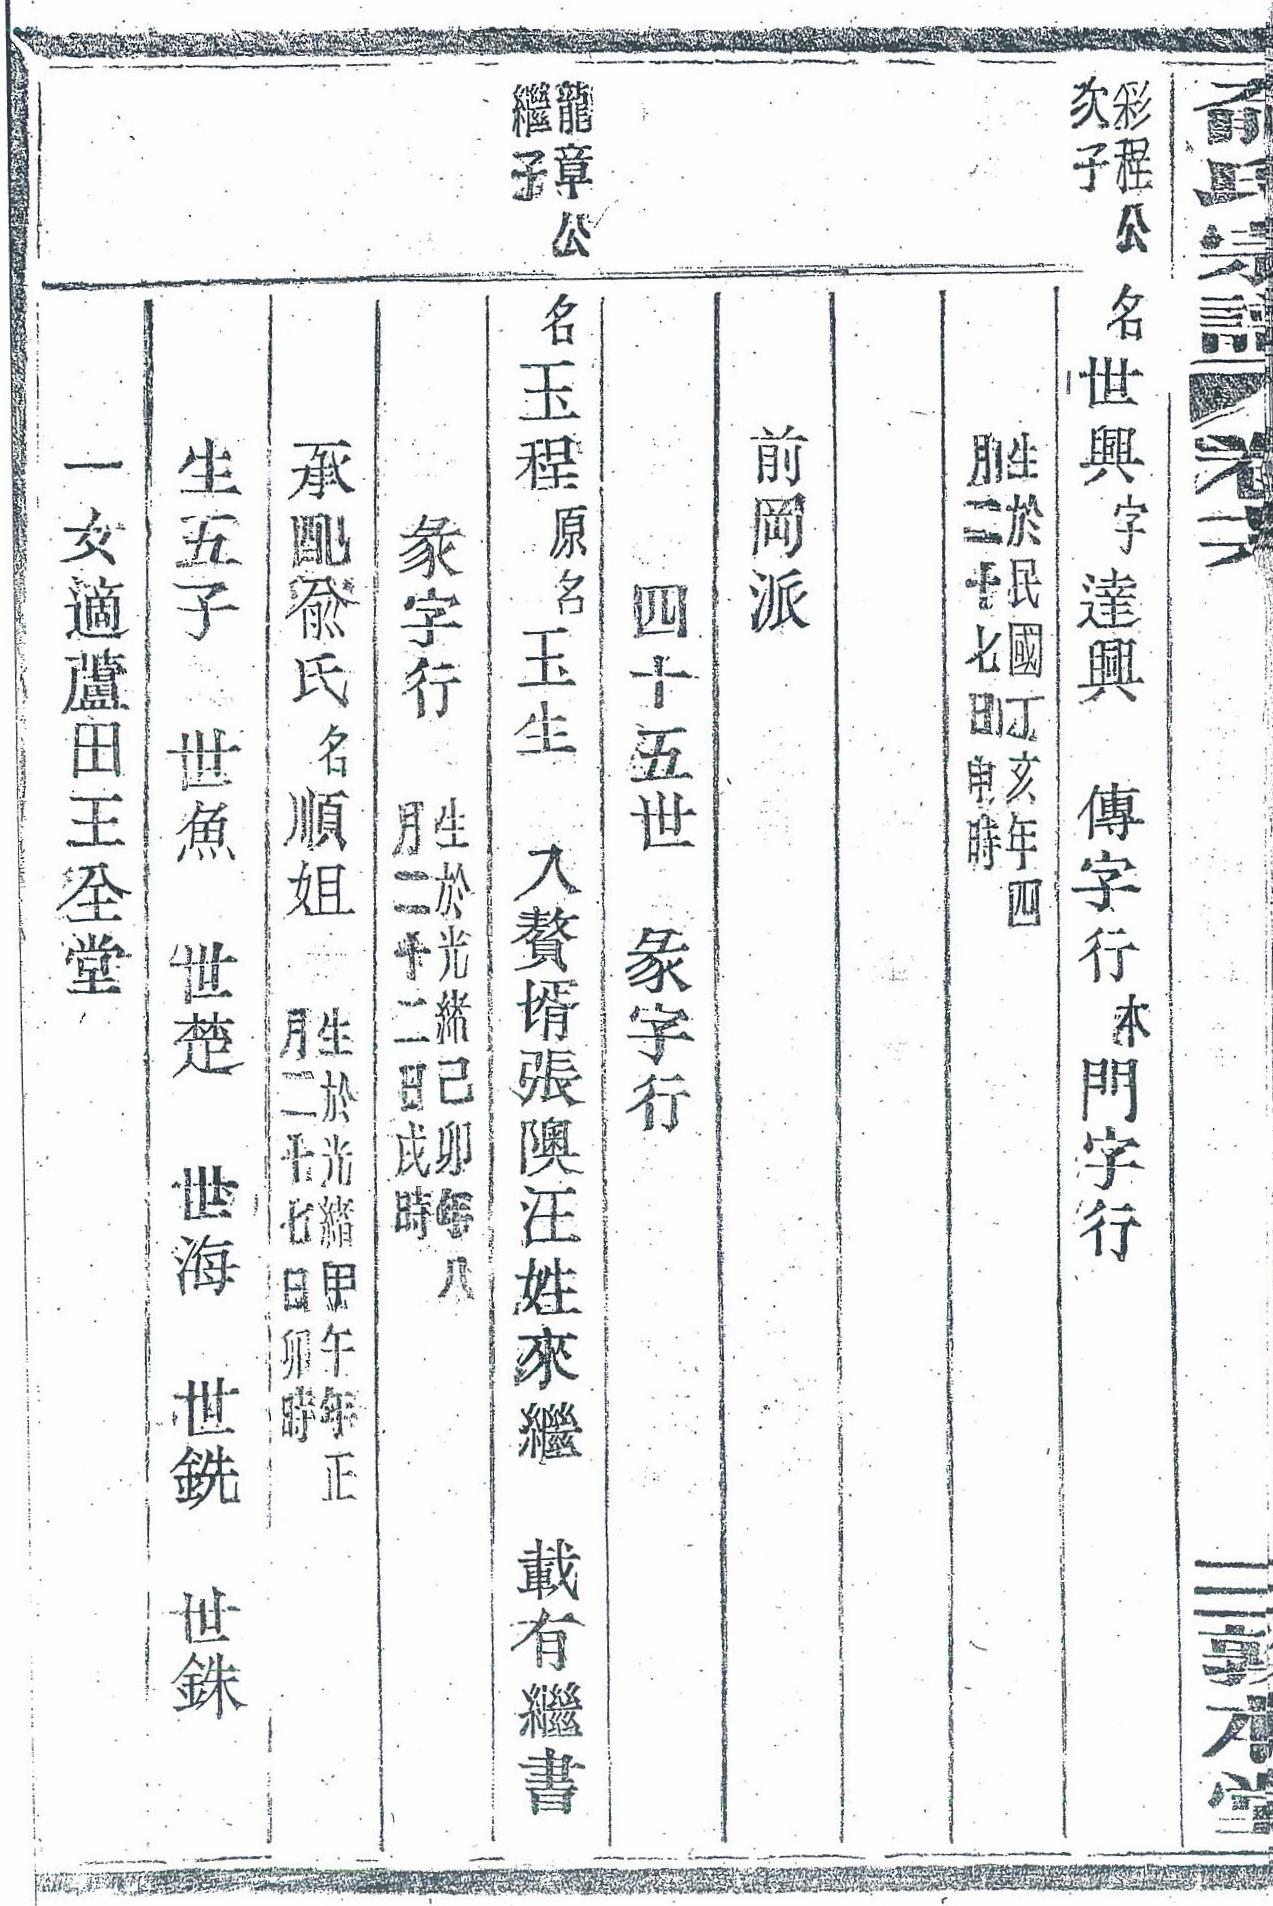 俞氏宗譜 卷六 三 敦本堂
彩程公
次子
名世興字達興 傳字行本門字行
生於民國丁亥年四
月二十七日申時
前岡派
四十五世 彖字行
龍章公
繼子
名玉程原名玉生 入贅壻張隩汪姓來繼 載有繼書
彖字行 生於光緒己卯年八
月二十二日戌時
承配俞氏名順姐 生於光緒甲午年正
月二十七日卯時
生五子 世魚 世楚 世海 世銑 世銖
一女適蘆田王全堂